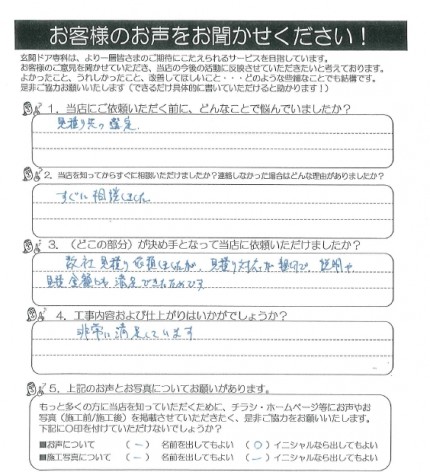 お客様のお声をお聞かせください！
玄関ドア専科は、より一層皆さまのご期待にこたえられるサービスを目指しています。
お客様のご意見を聞かせていただき、当店の今後の活動に反映させていただきたいと考えております。
よかったこと、うれしかったこと、改善してほしいこと・・・どのような些細なことでも結構です。
是非ご協力お願いいたします（できるだけ具体的に書いていただけると助かります！）
1．当店にご依頼いただく前に、どんなことで悩んでいましたか？
見積り先の選定
2．当店を知ってからすぐに相談いただけましたか？連絡しなかった場合はどんな理由がありましたか？
すぐに相談しました
3．（どこの部分）が決め手となって当店に依頼いただけましたか？
数社見積り依頼しましたが、見積り対応が親切で、説明や
見積金額にも満足できたためです
4．工事内容および仕上がりはいかがでしょうか？
非常に満足しています
5．上記のお声とお写真についてお願いがあります。
もっと多くの方に当店を知っていただくために、チラシ・ホームページ等にお声やお
写真（施工前/施工後）を掲載させていただきたく、是非ご協力をお願いいたします。
下記に○印を付けていただけないでしょうか？
■お声について （ー） 名前を出してもよい （○）イニシャルなら出してもよい
■施工写真について （ー） 名前を出してもよい （ー）イニシャルなら出してもよい